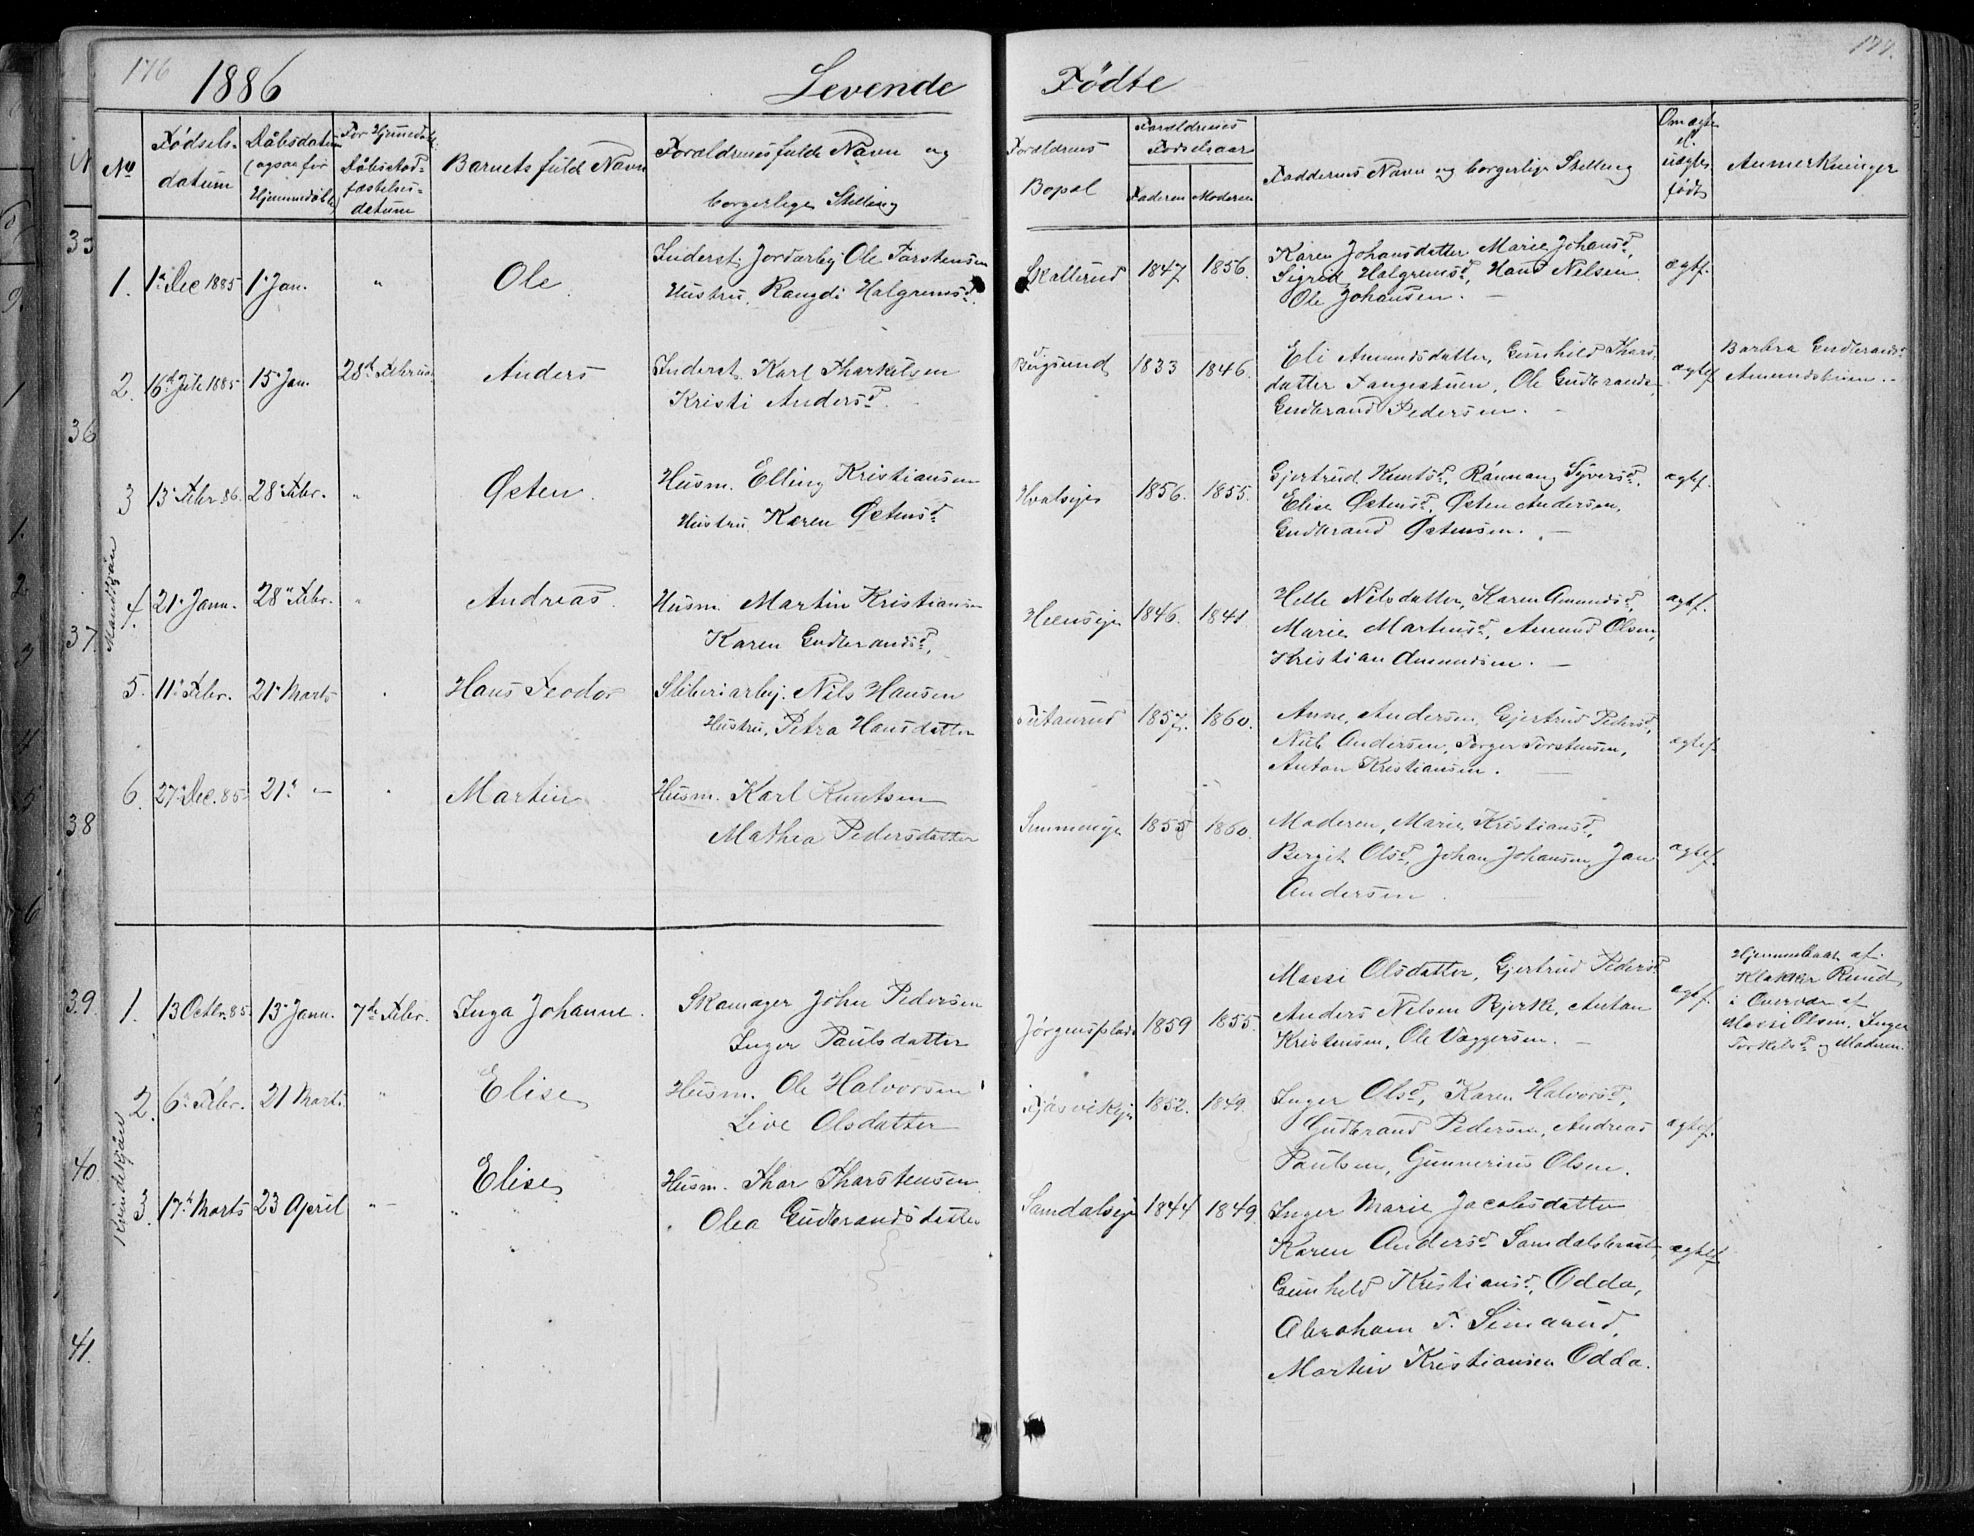 176
1886
Levende
Fødte
177.
No
Fødsels-
datum
Dåbsdatum
(ogsaa for
Hjemmedåb)
For Hjemmedåb:
Dåbsstad-
fæstelses-
datum
Barnets fulde Navn
Forældrenes fulde Navn og
borgerlige Stilling
Forældrenes
Bopæl
Forældrenes
Fødselsaar
Faderen
Moderen
Faddernes Navn og borgerlige Stilling
Om ægte
el.
uægte
født
Anmerkninger
Mandkjøn
1. 1ste Dec 1885 1. Jan. " Ole
Inderst. Jordarb. Ole Torstensen
Hustru, Rangdi Halgrimsd.
Skollerud 1847 1856.
Karen Johansdatter, Marie Johansd.,
Sigrid Halgrimsd., Hans Nilsen
Ole Johansen. —
ægtf.
2. 16d Juli 1885 15. Jan. 28d Februar Anders
Inderst. Karl Tharkelsen
Kristi Andersd.
Bergsund 1833 1846.
Eli Amundsdatter, Gunhild Thors-
datter Tangestuen, Ole Gudbrands.
Gudbrand Pedersen. —
ægtef.
Barbra Gudbrandsd.
Amundstuen.
3 13. Febr 86. 28. Febr. " Østen.
Husm. Elling Kristiansen
Hustru Karen Østensd.
Hvalseje 1856. 1855.
Gjertrud Knutsd., Rønnaug Syversd.,
Elise Østensd., Østen Andersen,
Gudbrand Østensen. —
ægtf.
4. 21. Janu. 28. Febr. " Andreas.
Husm. Martin Kristiansen
Karen Gudbrandsd.
Heenseje 1846. 1841.
Helle Nilsdatter, Karen Amundsd.,
Marie Martinsd., Amund Olsen,
Kristian Amundsen. —
ægtf.
5. 11. Febr. 21. Marts " Hans Teodor
Sliberiarbj. Nils Hansen
Hustru, Petra Hansdatter
1857. 1860.
Anne Andersen, Gjertrud Pedersd.,
Nils Andersen, Torger Torstensen,
Anton Kristiansen. —
ægtef.
6. 27. Dec. 85. 21. — " Martin
Husm. Karl Knutsen
Mathea Pedersdatter
Semmeneje 1855 1860.
Moderen, Marie Kristiansd.,
Bergit Olsd., Johan Johansen, Jan
Andersen.
ægtef.
Kvindekjøn
1. 13 Octbr. 85. 13. Janu. 7de Febr. Inga Johanne.
Skomager John Pedersen
Inger Paulsdatter
Jørgensplads 1859 1855.
Massi Olsdatter, Gjertrud Pedersd.
Anders Nilsen Bjerke, Anton
Kristensen, Ole Vaggersen. —
ægtf.
Hjemmedøbt af
Klokker Ruud
i Overvær af
Massi Olsen, Inger
Torkelsd. og Moderen.
2. 6. Febr. 21 Marts " Elise
Husm. Ole Halvorsen
Live Olsdatter
1852. 1849.
Inger Olsd., Karen Halvorsd.,
Gudbrand Pedersen, Andreas
Paulsen, Gunnerius Olsen.
ægtef.
3. 17. Marts 23 April " Elise
Husm. Thor Thorstensen
Olea Gudbrandsdatter
Samdalseje 1844 1849.
Inger Marie Jacobsdatter
Karen Andersd. Samdalsbraaten
Gunhild Kristiansd., Odda,
Abraham T. Semarud,
Martin Kristiansen Odda.
ægtef.
36
37
38
39.
40
41.